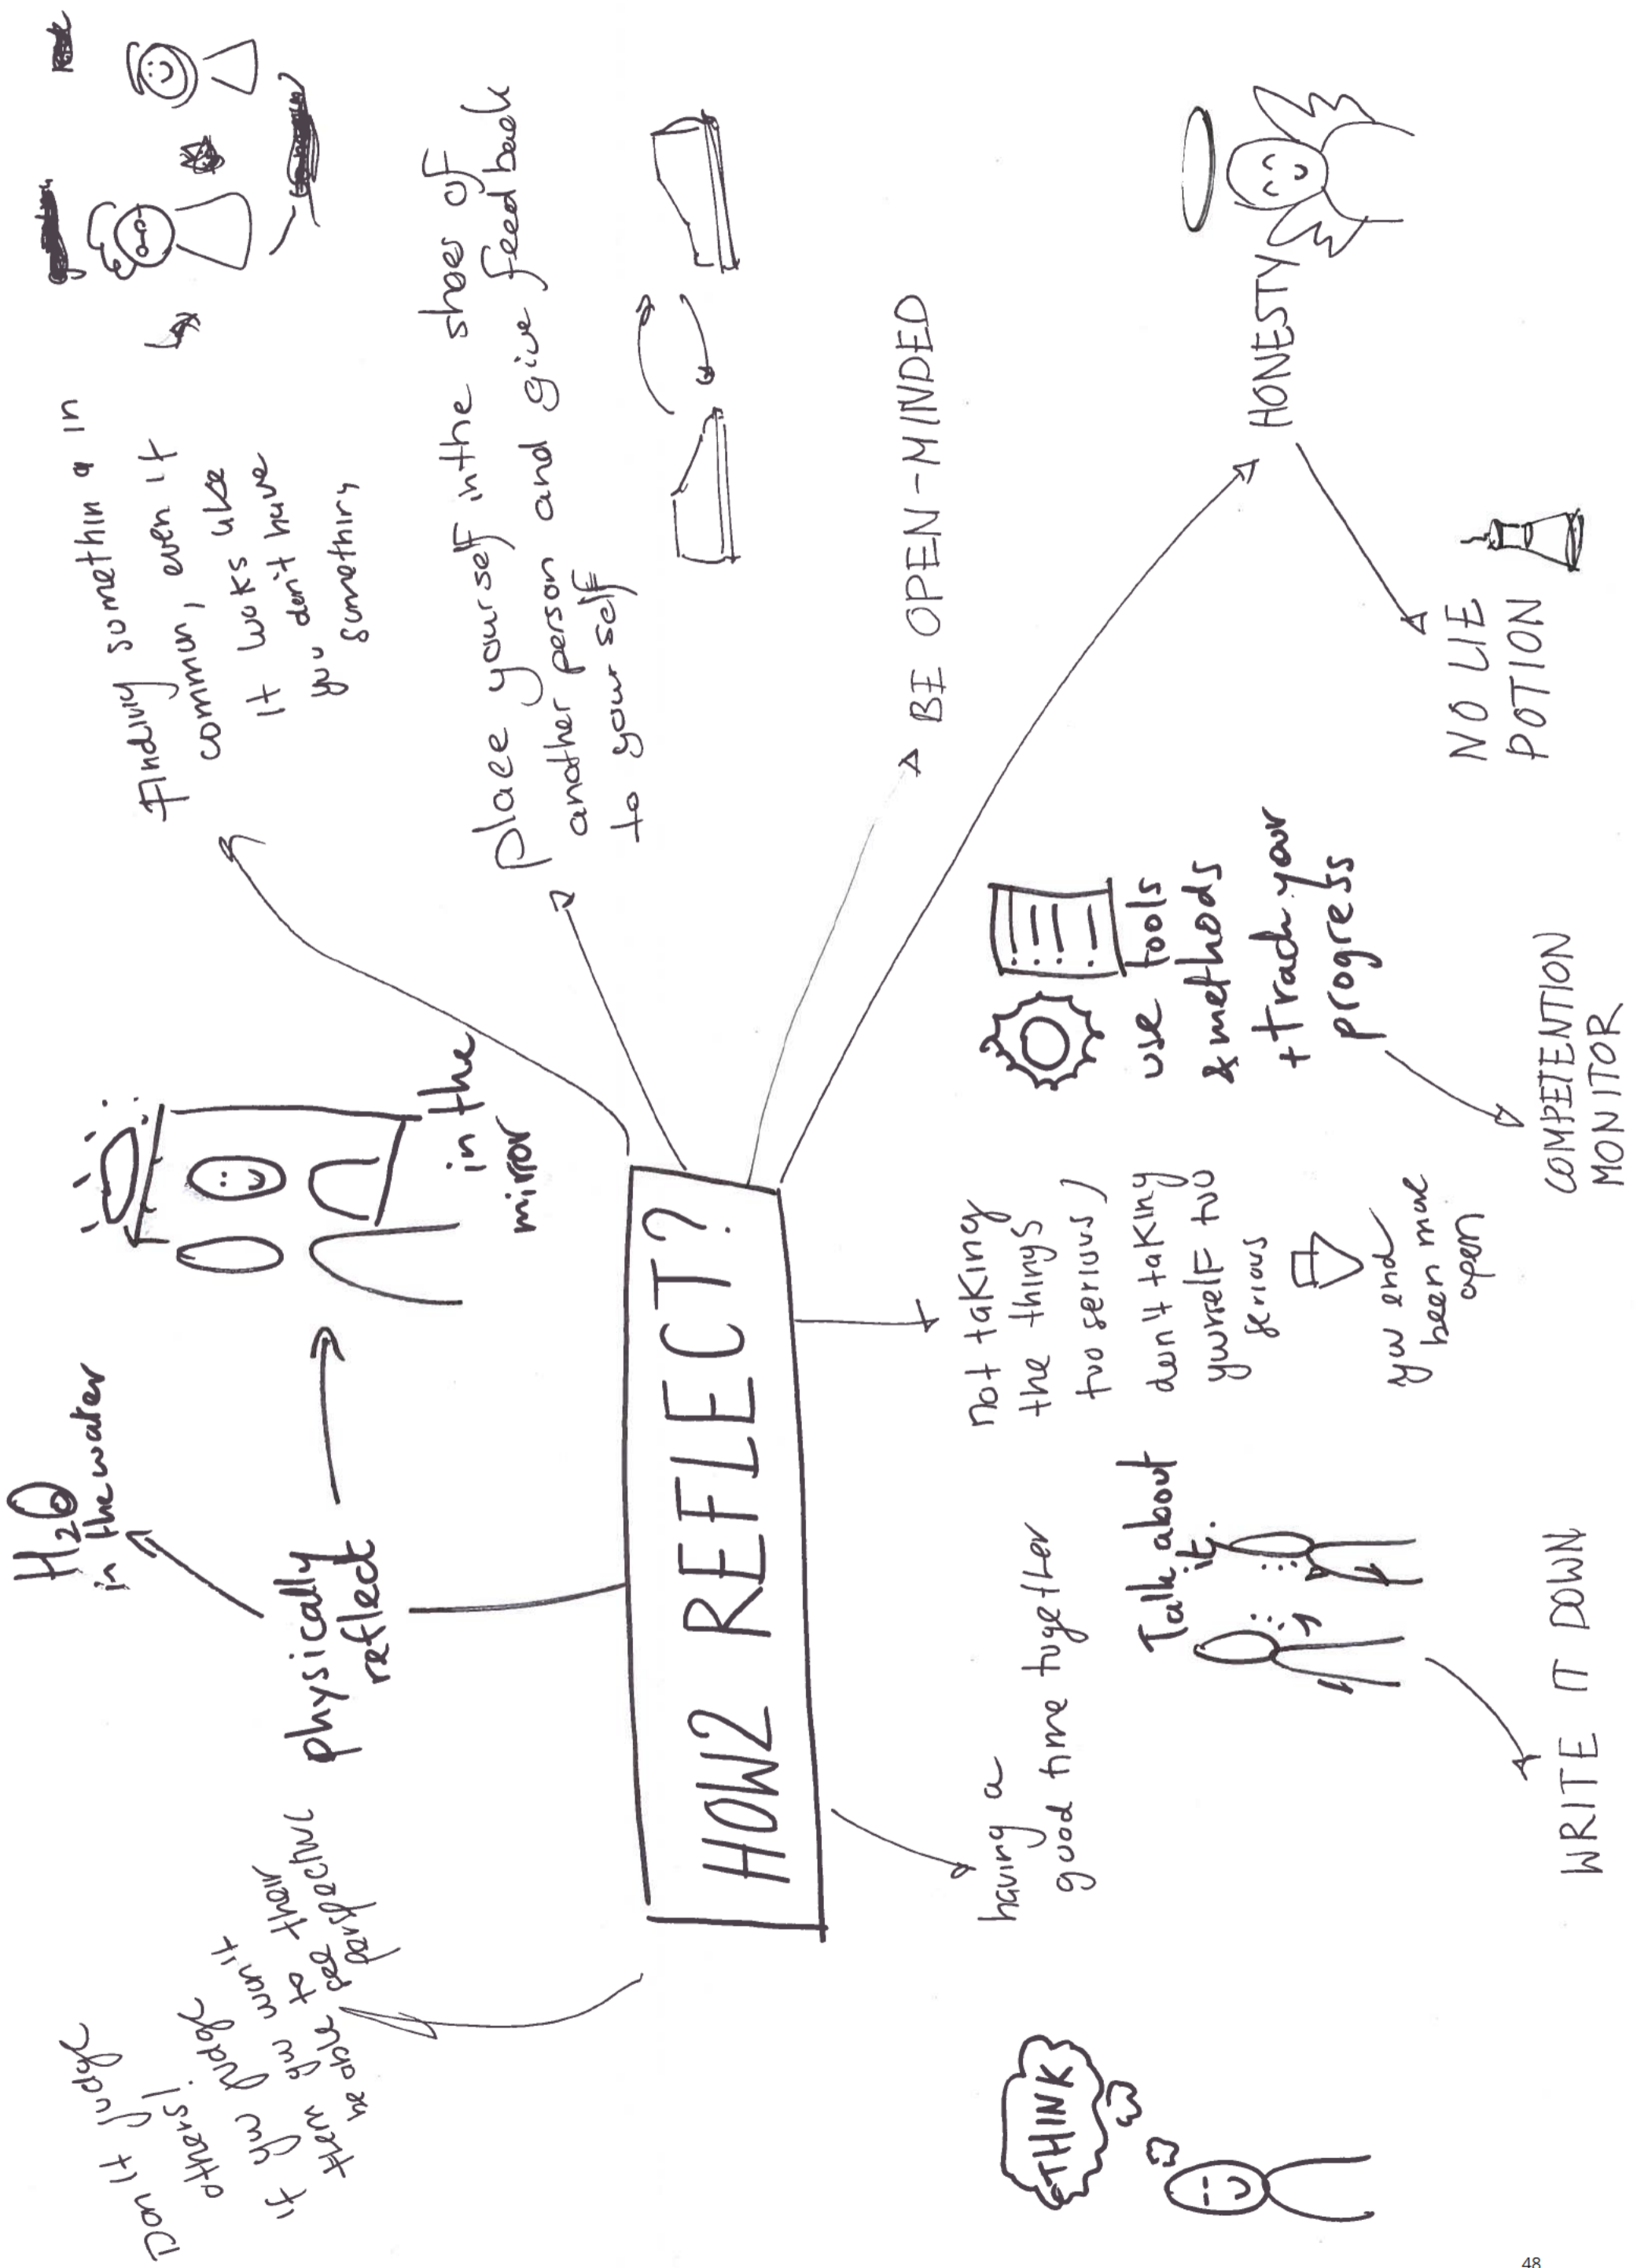 HOW2 REFLECT?
Don't judge
others!
if you judge
them you won't
be able to
see their
perspective
physically
reflect
H2O
in the water
in the
mirror
Finding somethin a in
commun, even if
it looks like
you don't have
something
place yourself in the shoes of
another person and give feedback
to your self
BE OPEN-MINDED
HONESTY
NO LIE
POTION
use tools
& methods
+ track your
progress
COMPETENTION
MONITOR
not taking
the things
too serious /
don't taking
yourself too
serious
you end
been more
open
having a
good time together
Talk about
it.
WRITE IT DOWN
THINK
48